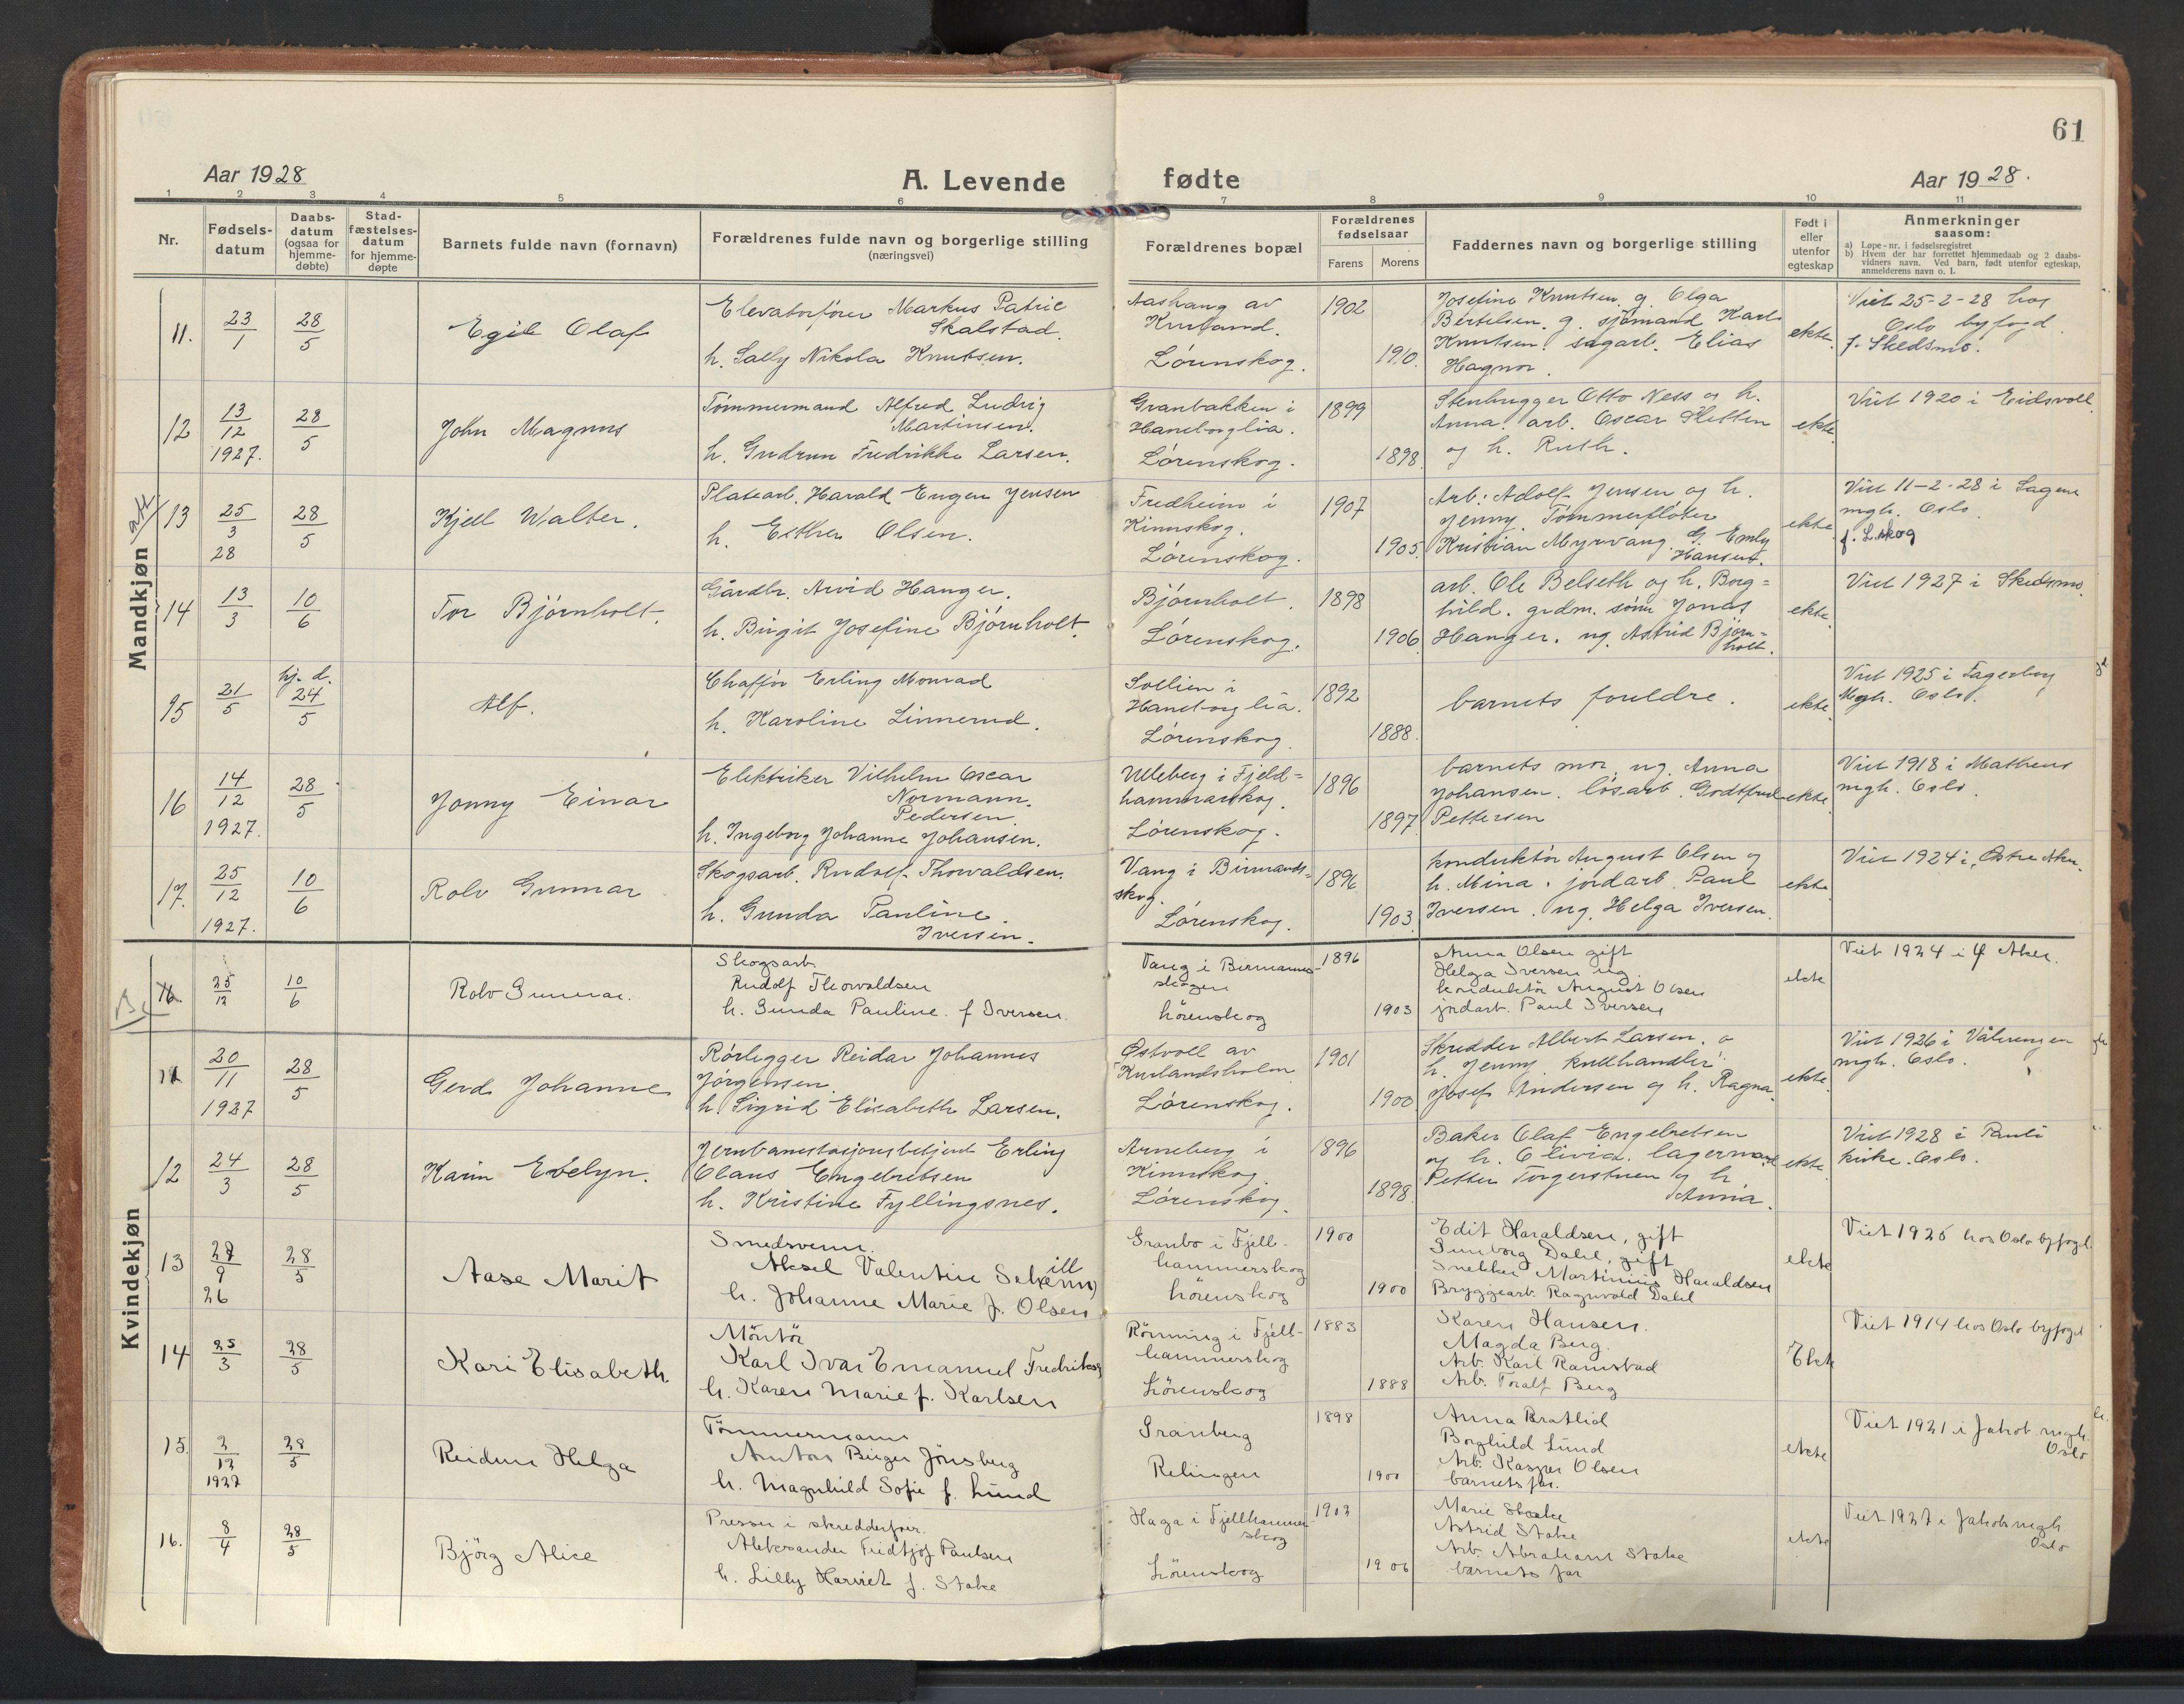 61
Aar 1928
A. Levende fødte
Aar 1928.
1 2 3 4 5 6 7 8 9 10 11
Nr.
Fødsels-
datum
Daabs-
datum
(ogsaa for
hjemme-
døbte)
Stad-
fæstelses-
datum
for hjemme-
døpte
Barnets fulde navn (fornavn)
Forældrenes fulde navn og borgerlige stilling
(næringsvei)
Forældrenes bopæl
Forældrenes
fødselsaar
Farens
Morens
Faddernes navn og borgerlige stilling
Født i
eller
utenfor
egteskap
Anmerkninger
saasom:
a) Løpe-nr. i fødselsregistret
b) Hvem der har forrettet hjemmedaab og 2 daabs-
vidners navn. Ved barn, født utenfor egteskap,
anmelderens navn o. l.
Mandkjøn
11.
23/1
28/5
Egil Olaf
Elevatorfører Markus Patric
Skalstad.
h. Sally Nikola Knutsen.
Aashaug av
Kurland.
Lørenskog.
1902
1910.
Josefine Knutsen. g. Olga
Bertelsen. g. sjømand Karl
Knutsen. sagarb. Elias
Hagnor.
ekte.
Viet 25-2-28 hos
Oslo byfogd.
f. Skedsmo.
12
13/12
1927.
28/5
John Magnus
Tømmermand Alfred Ludvig
Martinsen.
h. Gudrun Fredrikke Larsen.
Granbakken i
Haneborglia.
Lørenskog.
1899
1898.
Stenhugger Otto Ness og h.
Anna. arb. Oscar Sletten
og h. Ruth.
ekte.
Viet 1920 i Eidsvoll.
att
13
25/3
28
28/5
Kjell Walter.
Platearb. Harald Eugen Jensen
h. Esther Olsen.
Fredheim i
Kinnskog.
Lørenskog.
1907
1905.
Arb. Adolf Jensen og h.
Jenny. Tømmerfløter
Kristian Myrvang. G. Emly
Hansen.
ekte.
Viet 11-2-28 i Sagene
mgh. Oslo.
f. L.skog
14
13/3
10/6
Tor Bjørnholt.
Gårdbr. Arvid Hanger.
h. Birgit Josefine Bjørnholt.
Bjørnholt.
Lørenskog.
1898
1906.
arb. Ole Belseth og h. Borg=
hild. grdm. sønn Jonas
Hanger. ug. Astrid Bjørn=
holt.
ekte.
Viet 1927 i Skedsmo.
15
21/5
hj. d.
24/5
Alf.
Chaffør Erling Monrad
h. Karoline Linnerud.
Sollien i
Haneborglia.
Lørenskog.
1892
1888.
barnets foreldre.
ekte.
Viet 1925 i Fagerborg
Mgh. Oslo.
16
14/12
1927.
28/5
Jonny Einar
Elektriker Vilhelm Oscar
Normann.
Pedersen
h. Ingeborg Johanne Johansen.
Ulleberg i Fjeld=
hammarskog.
Lørenskog.
1896
1897
barnets mor ug. Anna
Johansen. løsarb. Godtfred
Pettersen
ekte.
Viet 1918 i Matheus
mgh. Oslo.
17.
25/12
1927.
10/6
Rolv Gunnar
Skogsarb. Rudolf Thorvaldsen.
h. Gunda Pauline.
Iversen.
Vang i Birmands=
skog.
Lørenskog.
1896
1903.
konduktør August Olsen og
h. Mina. jordarb. Paul
Iversen. ug. Helga Iversen.
ekte.
Viet 1924 i Østre Aker.
25/12
10/6
Rolv Gunnar.
Skogsarb.
Rudolf Thorvaldsen
h. Gunda Pauline. f Iversen.
Vang i Birmanns-
skogen
Lørenskog
1896
1903
Anna Olsen gift
Helga Iversen ug.
konduktør August Olsen
jordarb. Paul Iversen
ekte
Viet 1924 i Ø Aker.
Kvindekjøn
11
20/11
1927
28/5
Gerd Johanne
Rørlegger Reidar Johannes
Jørgensen.
h. Sigrid Elisabeth Larsen.
Østvoll av
Kurlandsholm
Lørenskog.
1901
1900
Skredder Albert Larsen. o
h. Jenny. kullhandler
Josef Andersen og h. Ragna.
ekte.
Viet 1926 i Vålerengen
mgh. Oslo.
12
24/3
28/5
Karin Evelyn.
Jernbanestasjonsbetjent Erling
Claus Engebretsen
h. Kristine Fyllingsnes.
Arneberg i
Kinnskog
Lørenskog.
1896
1898.
Baker Olaf Engebretsen
og h. Olivia. lagermand
Petter Torgerstuen og h
Anna.
ekte.
Viet 1928 i Pauli
kirke. Oslo.
13
28/9
26
28/5
Aase Marit
Smedsvenn.
Aksel Valentin
h. Johanne Marie f. Olsen
Granbo i Fjell-
hammerskog
Lørenskog
1900
1900
Edit Haraldsen, gift
Gunborg Dahl, gift
Snekker Martinius Haraldsen
Bryggearb. Ragnvald Dahl
ekte
Viet 1925 hos Oslo byfogd.
14
25/3
28/5
Kari Elisabeth.
Montør
Karl Ivar Emanuel Fredriksen
h. Karen Marie f. Karlsen
Rønning i Fjell-
hammerskog
Lørenskog
1883
1888
Karen Hansen.
Magda Berg.
Arb. Karl Ramstad
Arb. Toralf Berg
Ekte
Viet 1914 hos Oslo byfogd
15.
2/12
1927
28/5
Reidun Helga
Tømmermann
Anton Birger Jønsberg
h. Magnhild Sofie f. Lund
Granberg
Relingen
1898
1900
Anna Bratlid
Borghild Lund
Arb. Kasper Olsen
barnets far.
ekte
Viet 1921 i Jakob mgh.
Oslo
16.
8/4
28/5
Bjørg Alice
Presser i skredderforr.
Aleksander Fridtjof Paulsen
h. Lilly Harriet f. Stake
Haga i Fjellhammer
skog
Lørenskog
1903
1906
Marie Stake
Astrid Stake
Arb. Abraham Stake
barnets far
ekte
Viet 1927 i Jakob mgh
Oslo